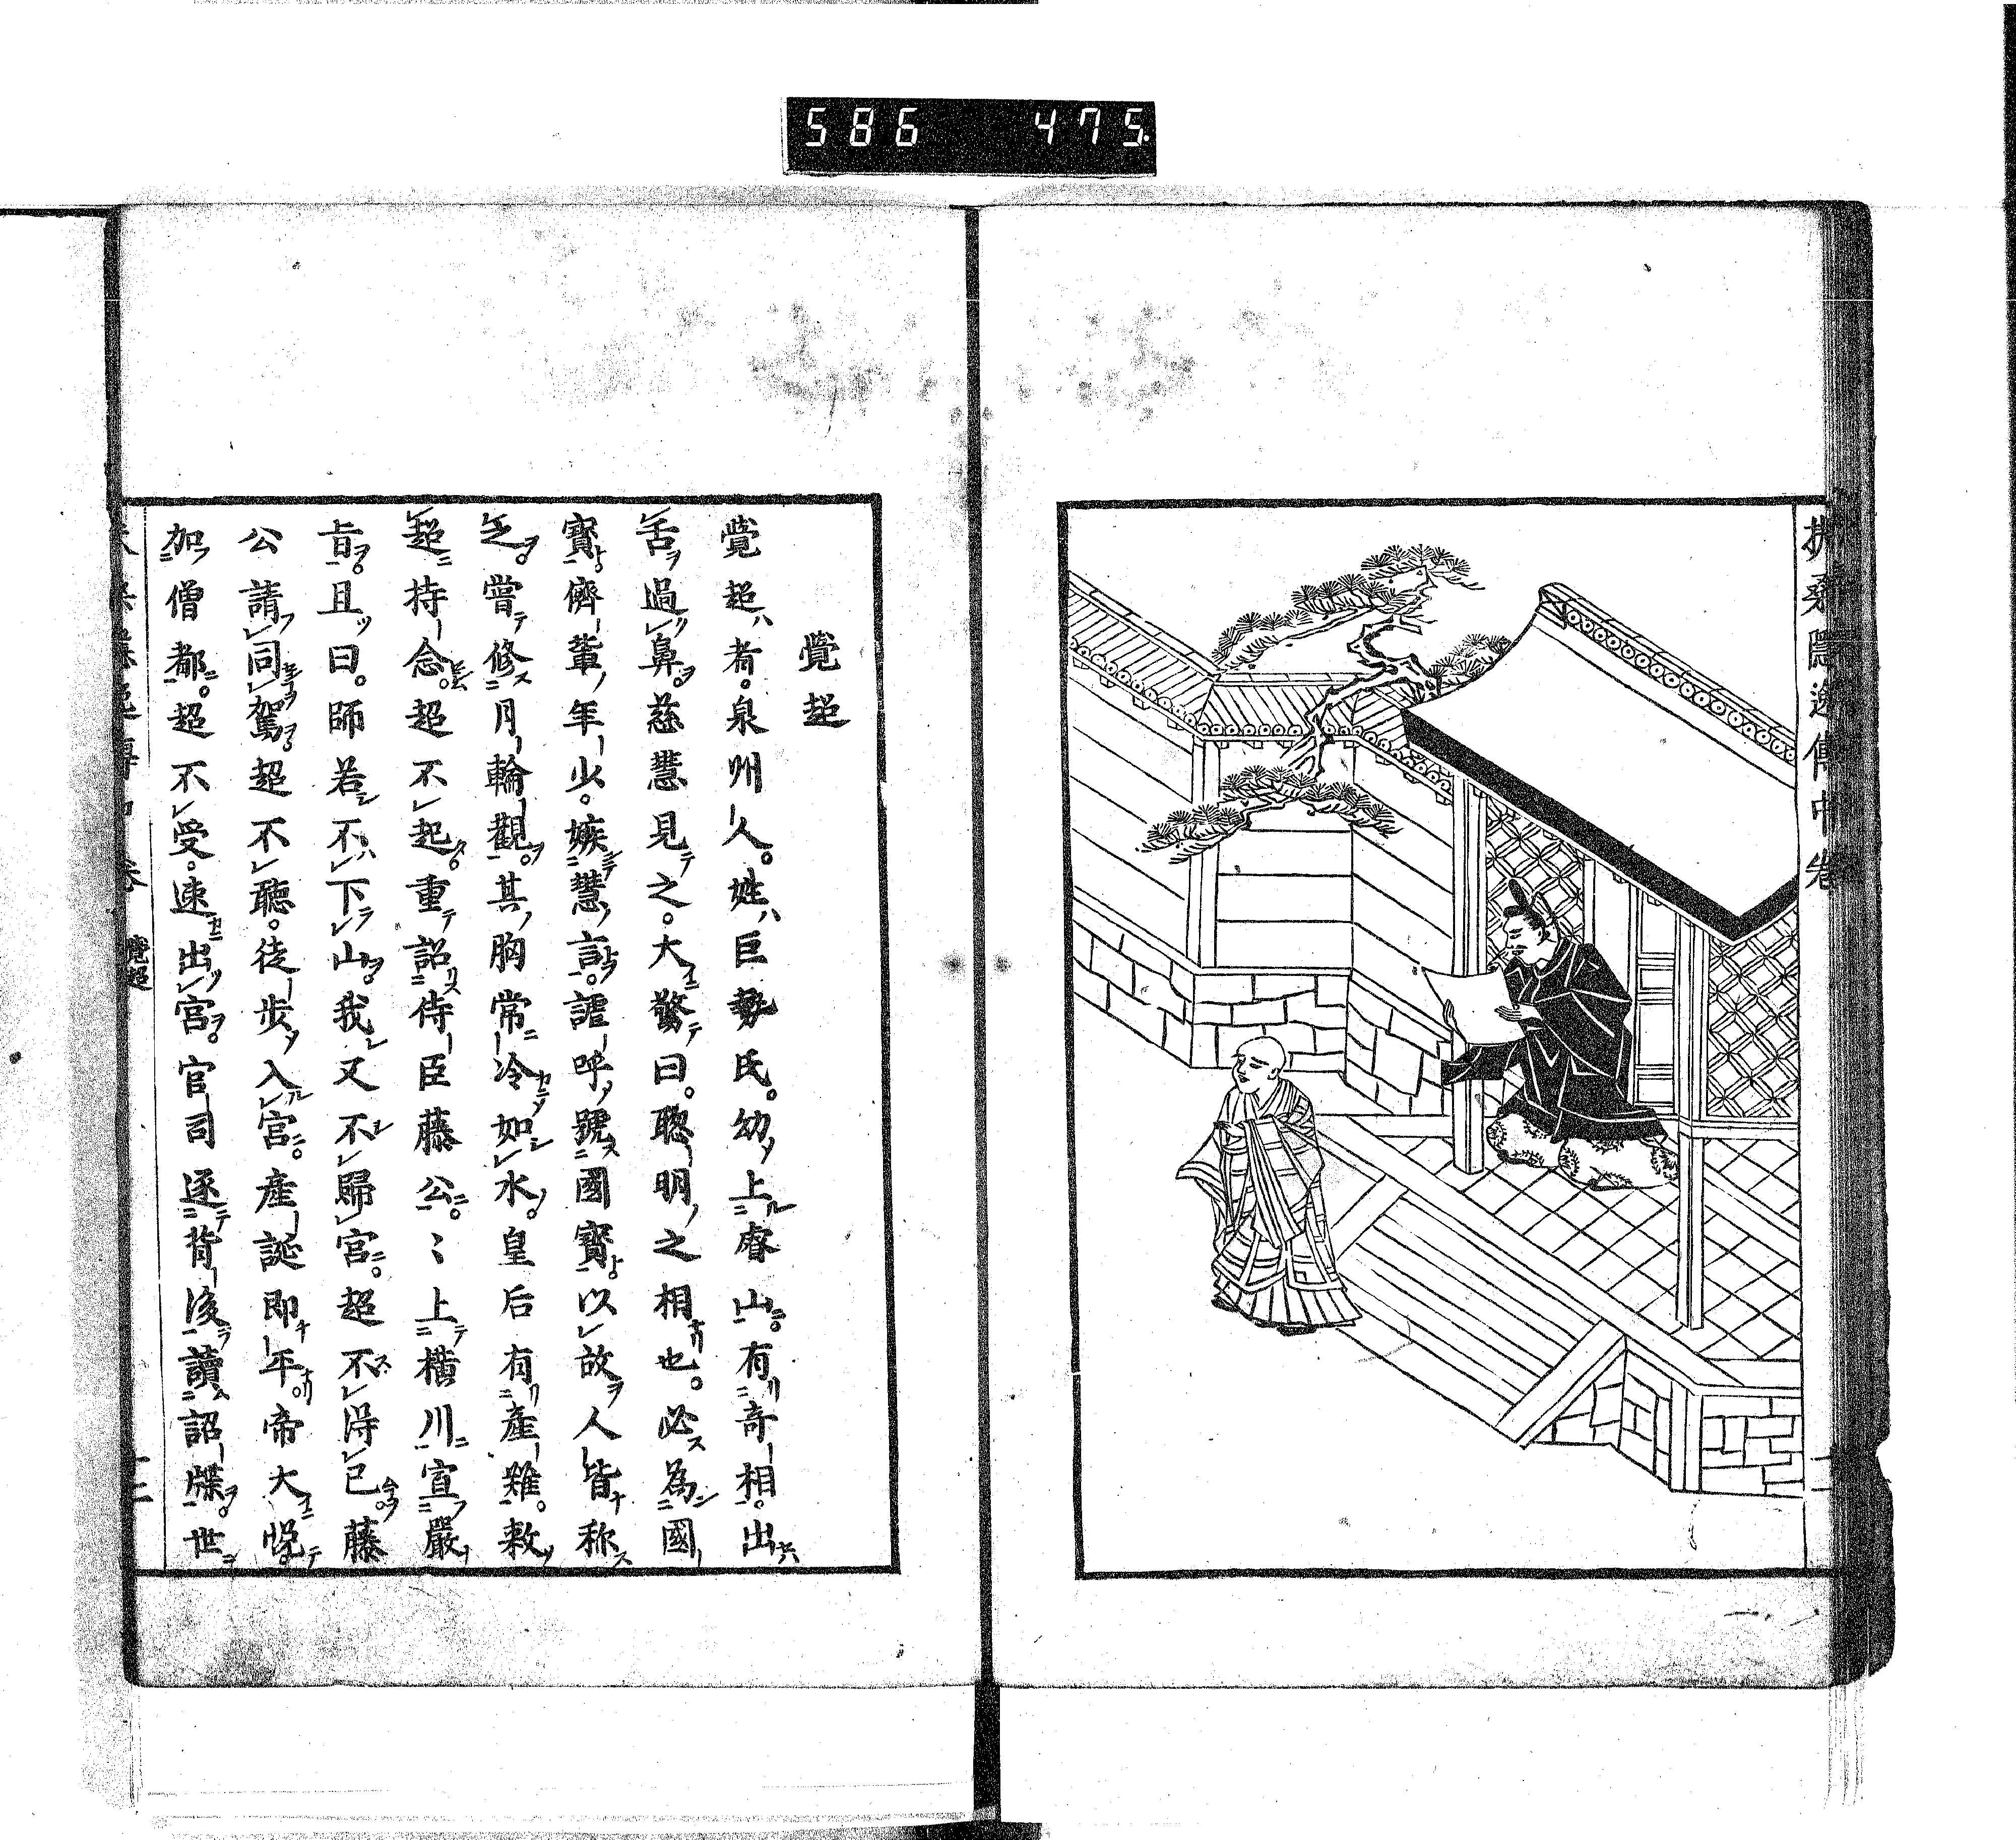 586 475
扶桑隱逸傳中卷
覺超
覺超者。泉州人。姓巨勢氏。幼上睿山。有奇相。出
舌過鼻。慈慧見之。大驚曰。聰明之相也。必為國
寶。儕輩年少。嫉慧言。謔呼號國寶。以故人皆称
之。嘗修月輪觀。其胸常冷如水。皇后有産難。敕
超持念。超不起。重詔侍臣藤公。〻上横川宣嚴
旨。且曰。師若不下山。我又不歸宮。超不得已。藤
公請同駕。超不聽。徒步入宮。産誕即平。帝大悦
加僧都。超不受。速出宮。官司逐背後讀詔牒。世
覺超